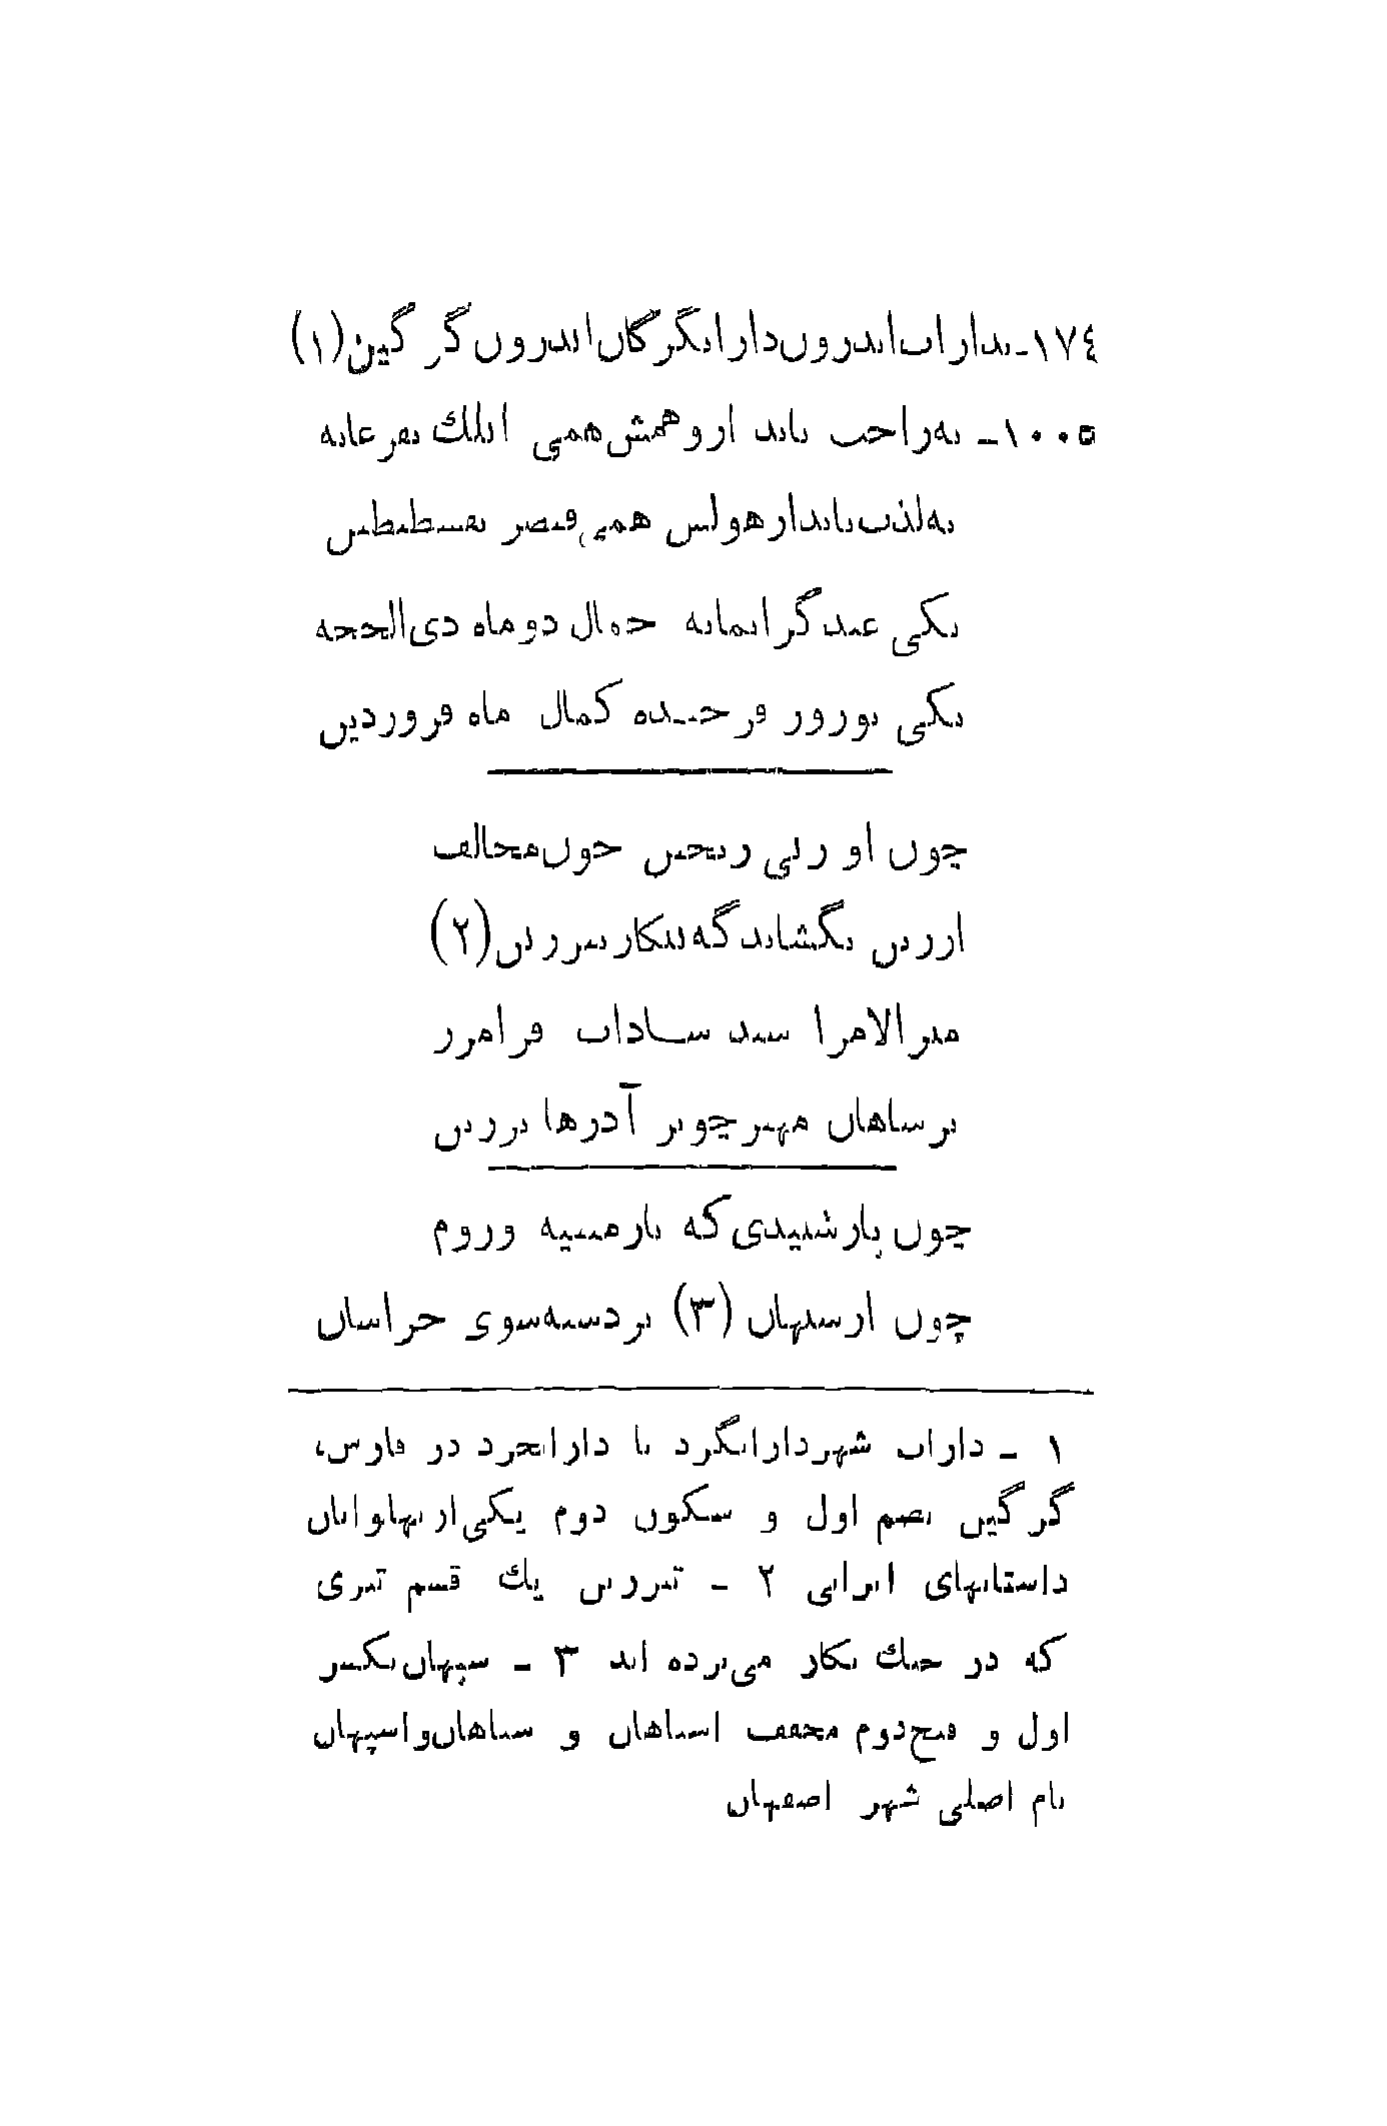 ١٧٤-بداراب اندرون دارا بگرگان اندرون گرگین (١)
١٠٠٥- به راحت باید ازو همش همی ایلك بفرغانه
به لذت باید از هولش همی قیصر بقسطنطین
یکی عید گرانمایه جمال دو ماه ذی‌الحجه
یکی نوروز فرخنده کمال ماه فروردین
چون او زپی ریختن خون مخالف
از زین بگشاید گه پیکار تبرزین (٢)
میرالامرا سید سادات فرامرز
بر شاهان مهتر چو بر آذرها برزین
چون بازشنیدی که بارمنیه و روم
چون از سپهان (٣) بر دسته سوی خراسان
١ - داراب شهر دارابگرد یا دارابجرد در فارس،
گرگین بضم اول و سکون دوم یکی از پهلوانان
داستانهای ایرانی ٢ - تبرزین یك قسم تبری
که در جنك بکار می‌برده اند ٣ - سپهان بکسر
اول و فتح دوم مخفف اسپاهان و سپاهان و اسپهان
نام اصلی شهر اصفهان